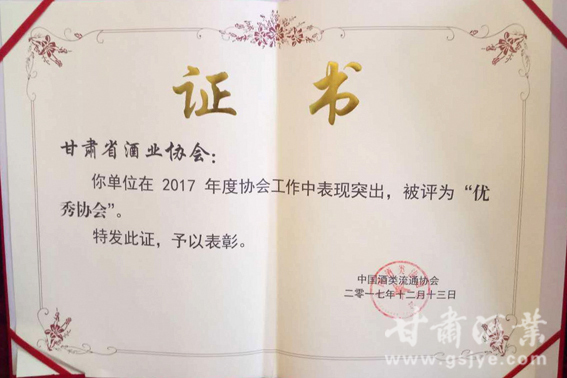 证书
甘肃省酒业协会：
你单位在 2017 年度协会工作中表现突出，被评为“优
秀协会”。
特发此证，予以表彰。
中国酒类流通协会
二零一七年十二月十三日
甘肃酒業
www.gsjye.com